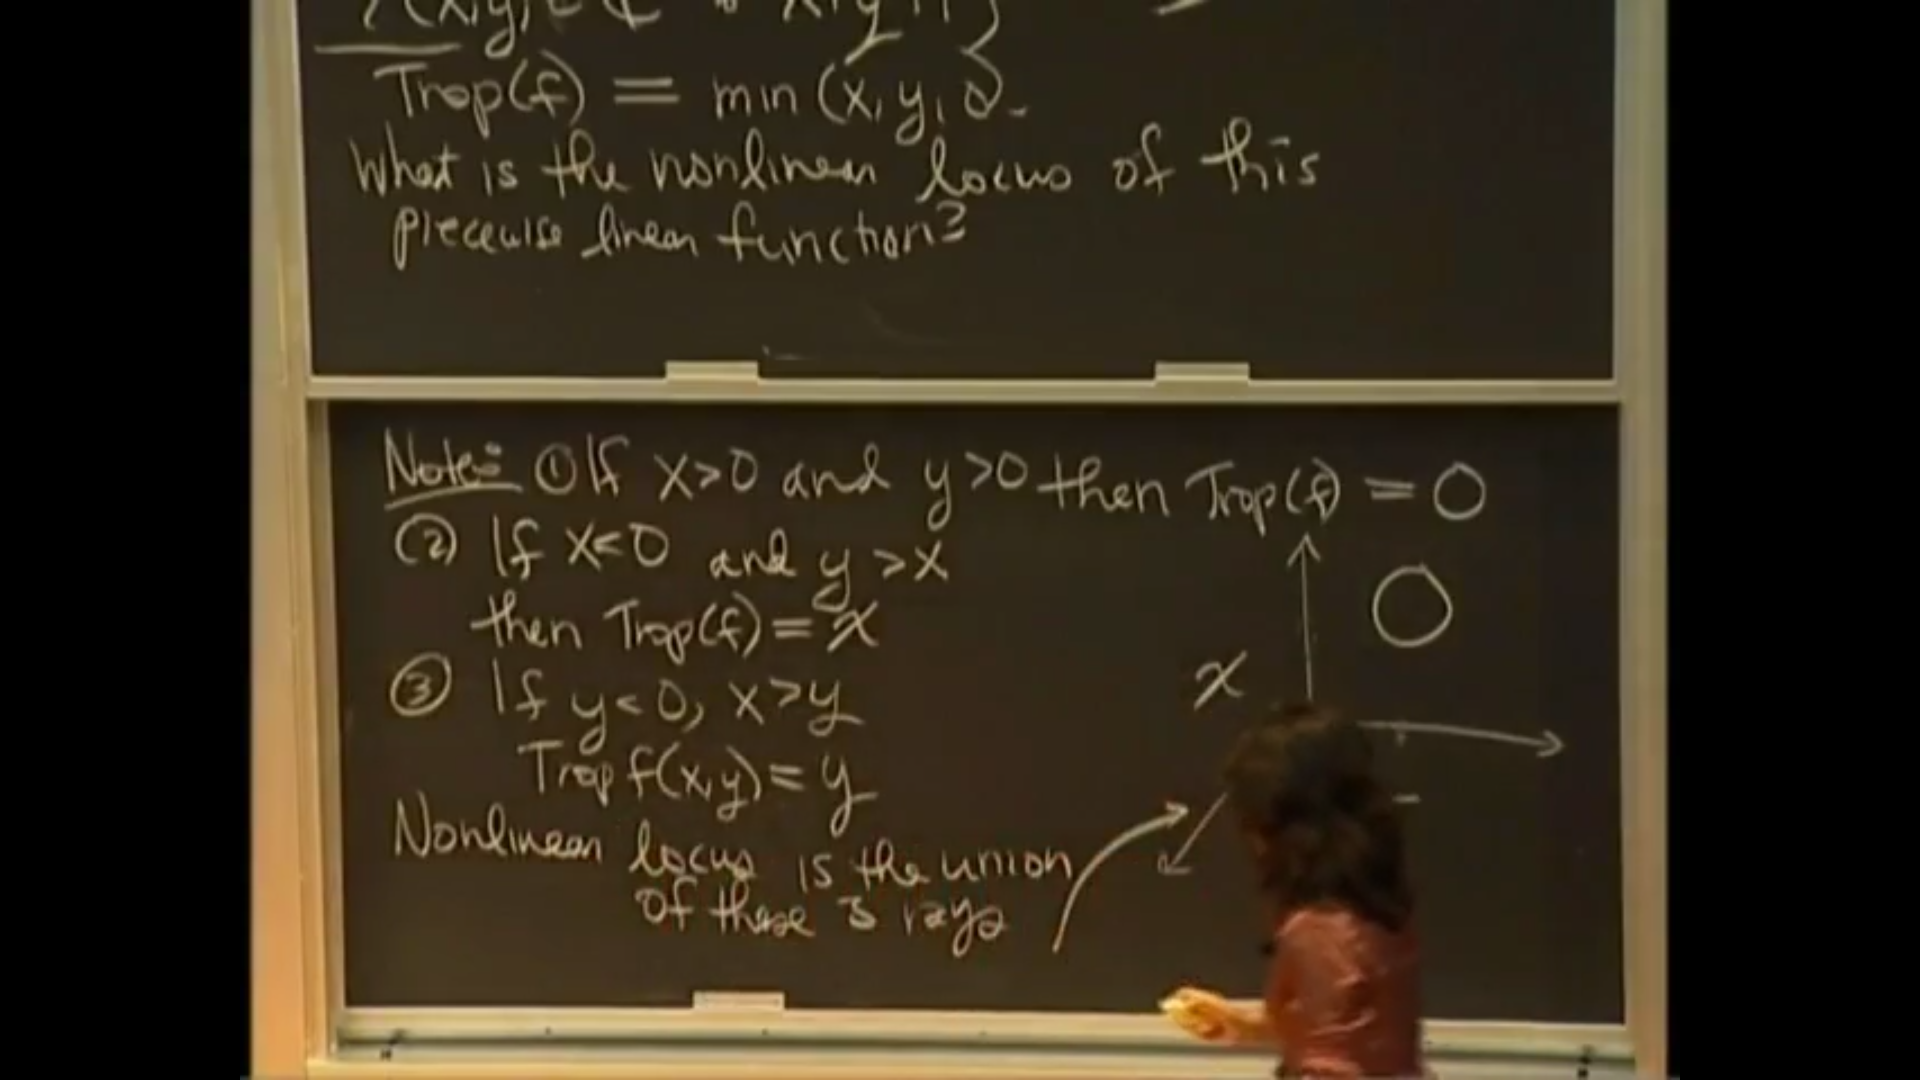 Trop(f) = min (x, y, 0).
What is the nonlinear locus of this
piecewise linear function?
Note: ① If x>0 and y>0 then Trop(f) = 0
(2) If x<0 and y>x
then Trop(f) = x
③ If y<0, x>y
Trop f(x,y) = y
Nonlinear locus is the union
of these 3 rays
0
x